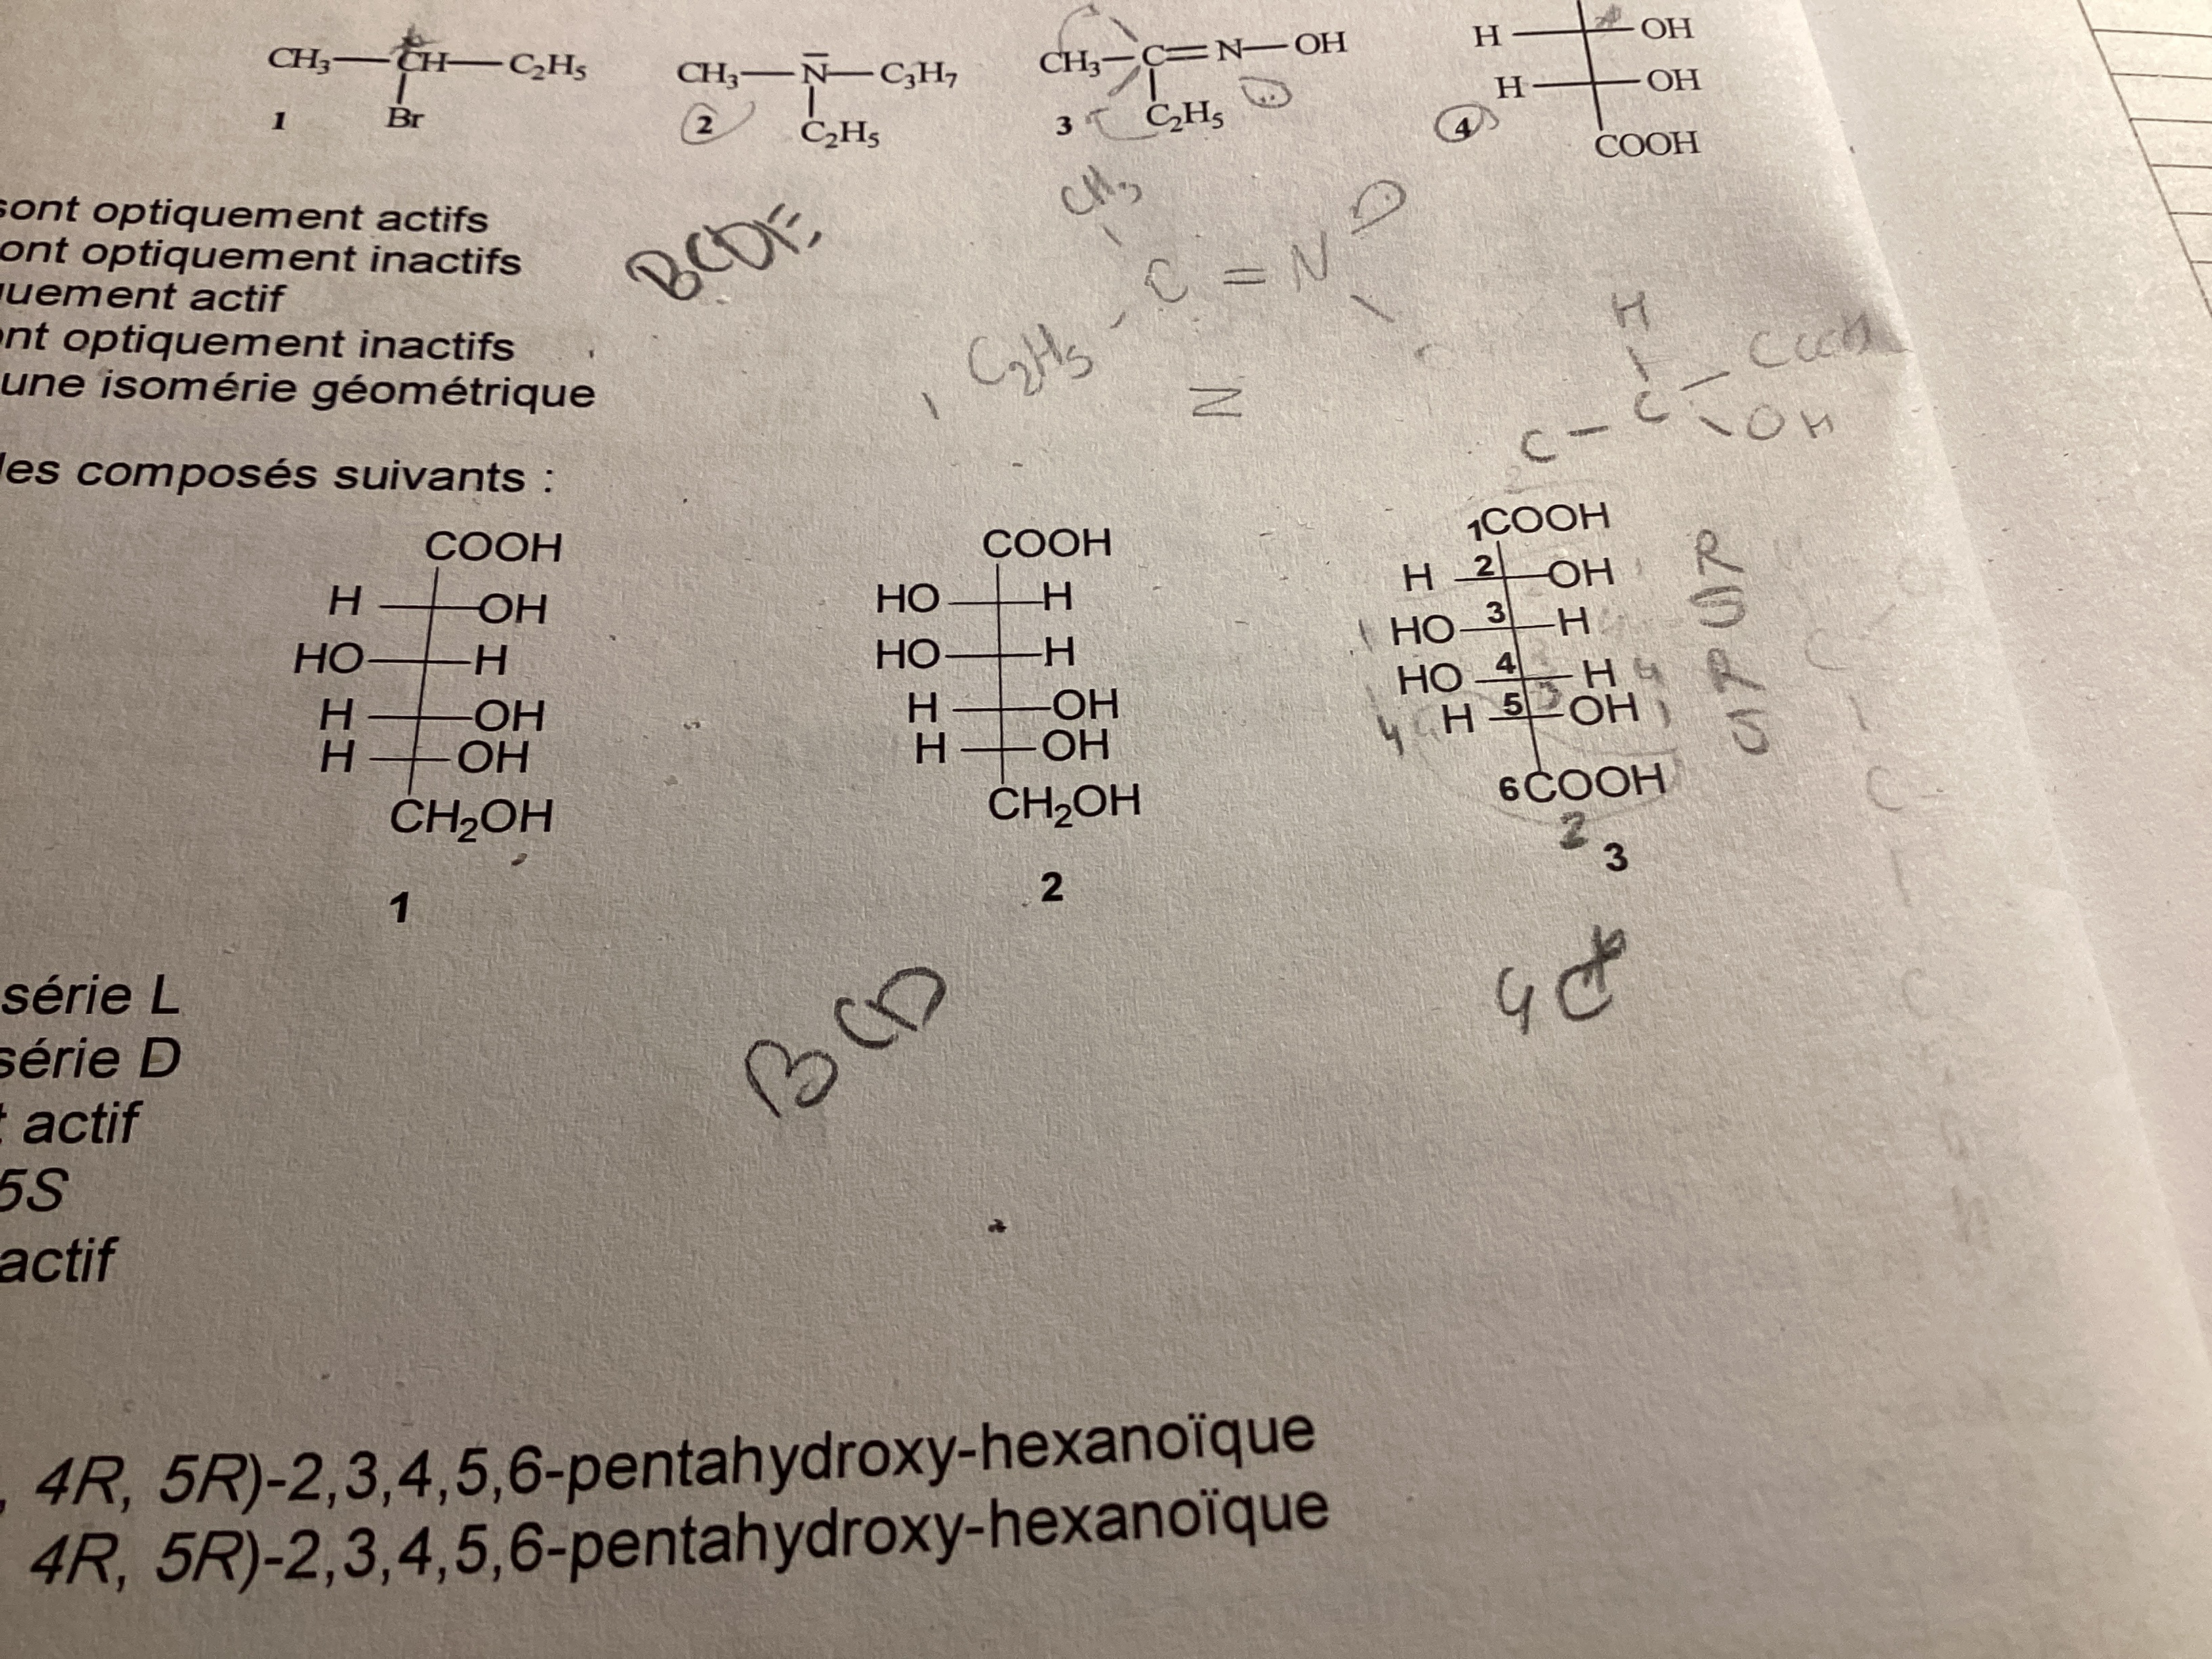 CH₃—CH—C₂H₅ CH₃—N—C₃H₇ CH₃—C=N—OH H OH
H OH
Br C₂H₅ C₂H₅ COOH
1 2 3 4
sont optiquement actifs
ont optiquement inactifs
uement actif
nt optiquement inactifs
une isomérie géométrique
BCDE
CH₃
C = N
C₂H₅
Z
H
C — C — COOH
OH
les composés suivants :
COOH
H OH
HO H
H OH
H OH
CH₂OH
1
COOH
HO H
HO H
H OH
H OH
CH₂OH
2
1COOH
H 2 OH R
HO 3 H S
HO 4 H R
H 5 OH S
6COOH
2
3
4 C*
BCD
série L
série D
actif
5S
actif
, 4R, 5R)-2,3,4,5,6-pentahydroxy-hexanoïque
4R, 5R)-2,3,4,5,6-pentahydroxy-hexanoïque